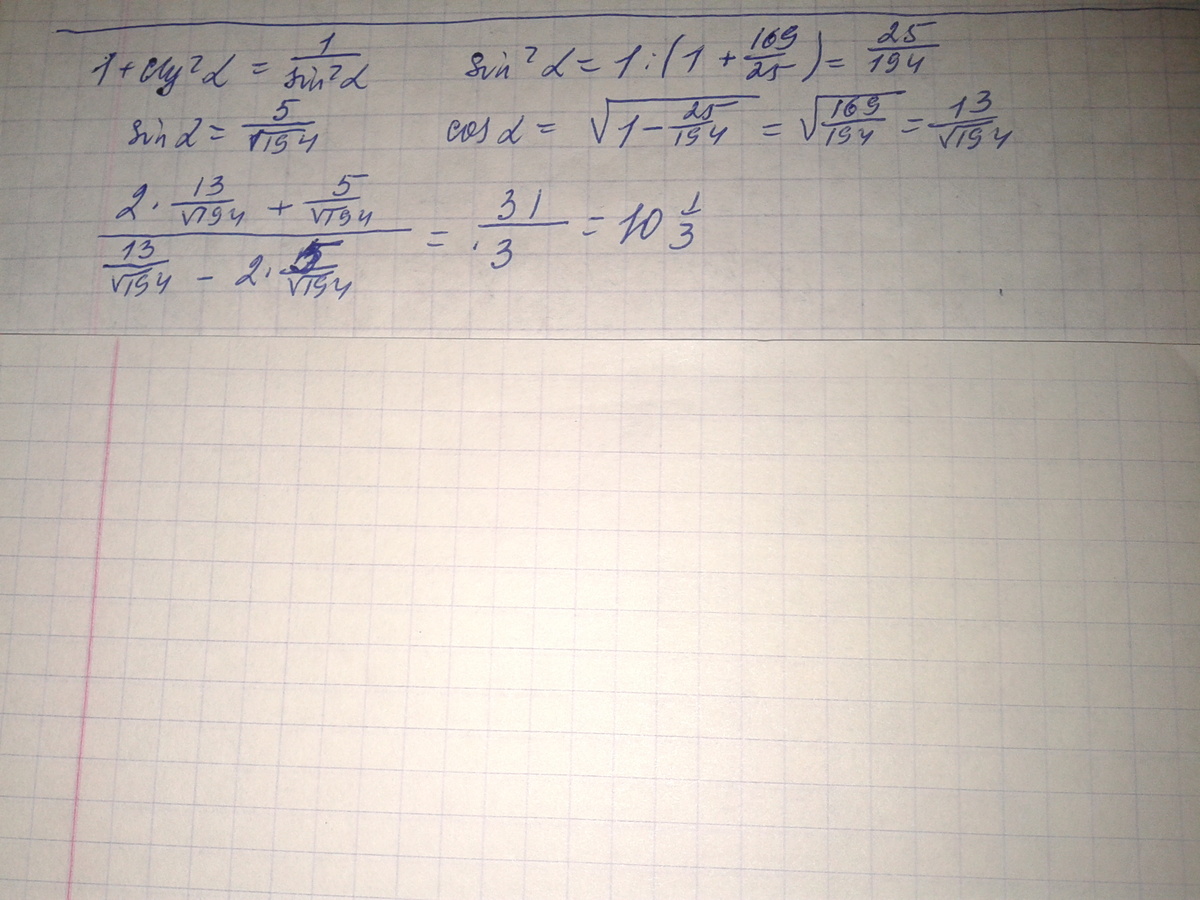 1 + ctg²α = 1/sin²α    sin²α = 1 : (1 + 169/25) = 25/194
sin α = 5/√194    cos α = √(1 − 25/194) = √(169/194) = 13/√194
(2 · 13/√194 + 5/√194)/(13/√194 − 2 · 5/√194) = 31/3 = 10 1/3